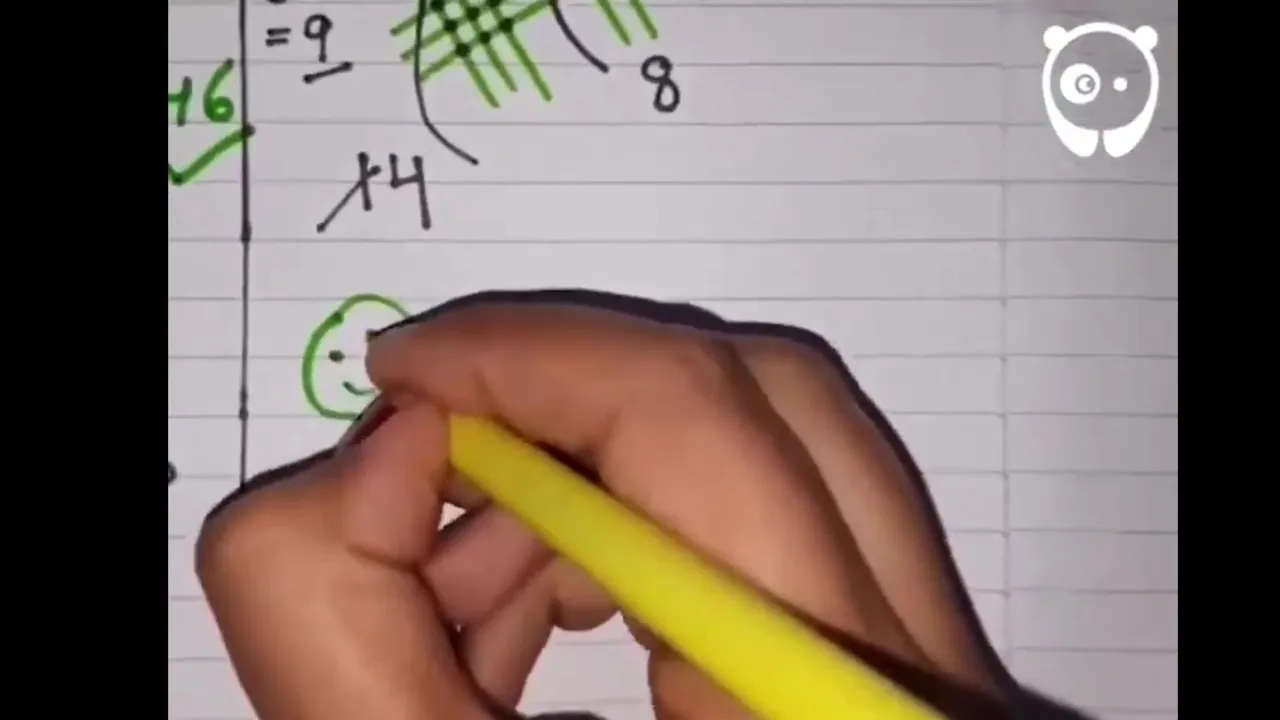 = 9
16
8
14